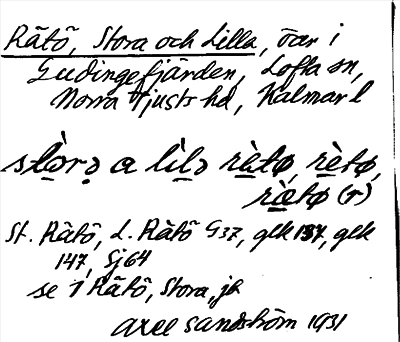 Rätö, Stora och Lilla, öar i
Gudingefjärden, Lofta sn,
Norra Tjusts hd, Kalmar l
stòrə a lìlə ràtø, rètø,
ræ̀tø (r)
St. Rätö, L. Rätö G37, gek 137, gek
147, Sj64
se 1 Rätö, Stora, jb
Axel Sandström 1931